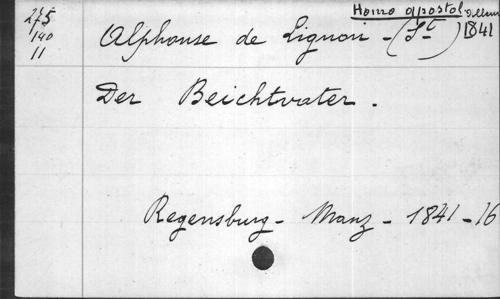 Homo apostol
1841
275
140
11
Alphonse de Liguori - (St)
Der Beichtvater.
Regensburg - Manz - 1841 - 16